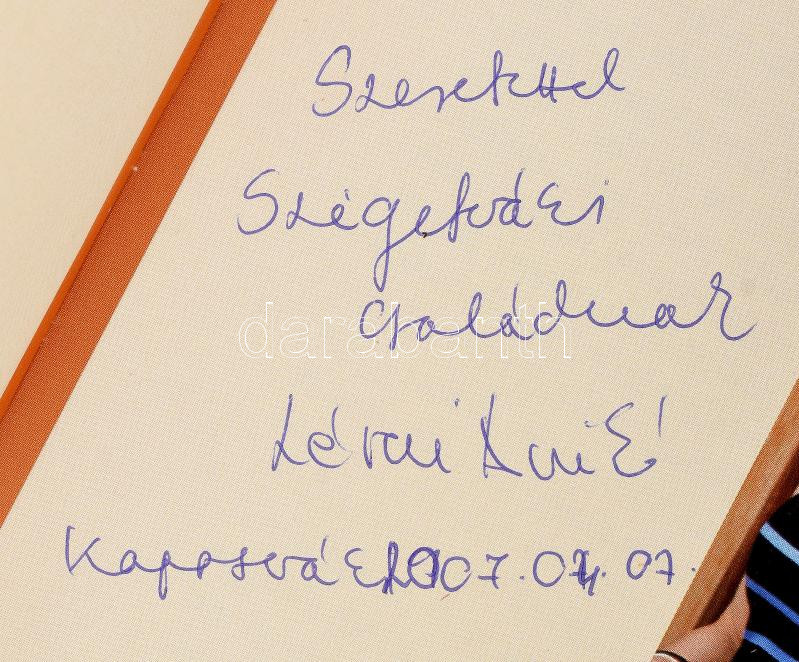 Szeretettel
Szigetvári
Családnak
Lévai
Kaposvár 2007.04.07.
darabanth